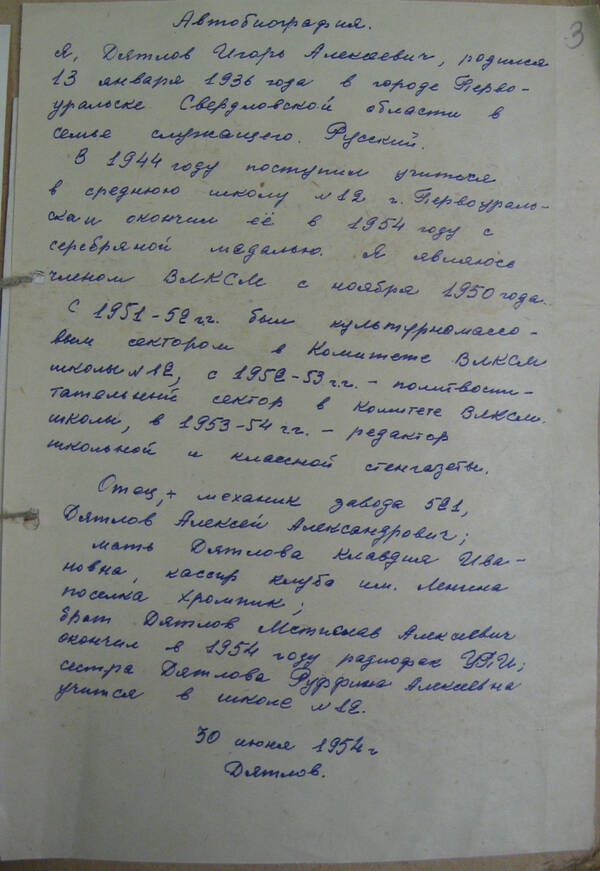 3
Автобиография.
Я, Дятлов Игорь Алексеевич, родился
13 января 1936 года в городе Перво-
уральске Свердловской области в
семье служащего. Русский.
В 1944 году поступил учиться
в среднюю школу №12 г. Первоураль-
ска и окончил её в 1954 году с
серебряной медалью. Я являюсь
членом ВЛКСМ с ноября 1950 года.
С 1951-52 г.г. был культурномассо-
вым сектором в Комитете ВЛКСМ
школы №12, с 1952-53 г.г. - политвоспи-
тательный сектор в Комитете ВЛКСМ.
школы, в 1953-54 г.г. - редактор
школьной и классной стенгазеты.
Отец, - механик завода 521,
Дятлов Алексей Александрович;
мать Дятлова Клавдия Ива-
новна, кассир клуба им. Ленина
поселка Хромпик;
брат Дятлов Мстислав Алексеевич
окончил в 1954 году радиофак УПИ;
сестра Дятлова Руффина Алексеевна
учится в школе №12.
30 июня 1954 г
Дятлов.